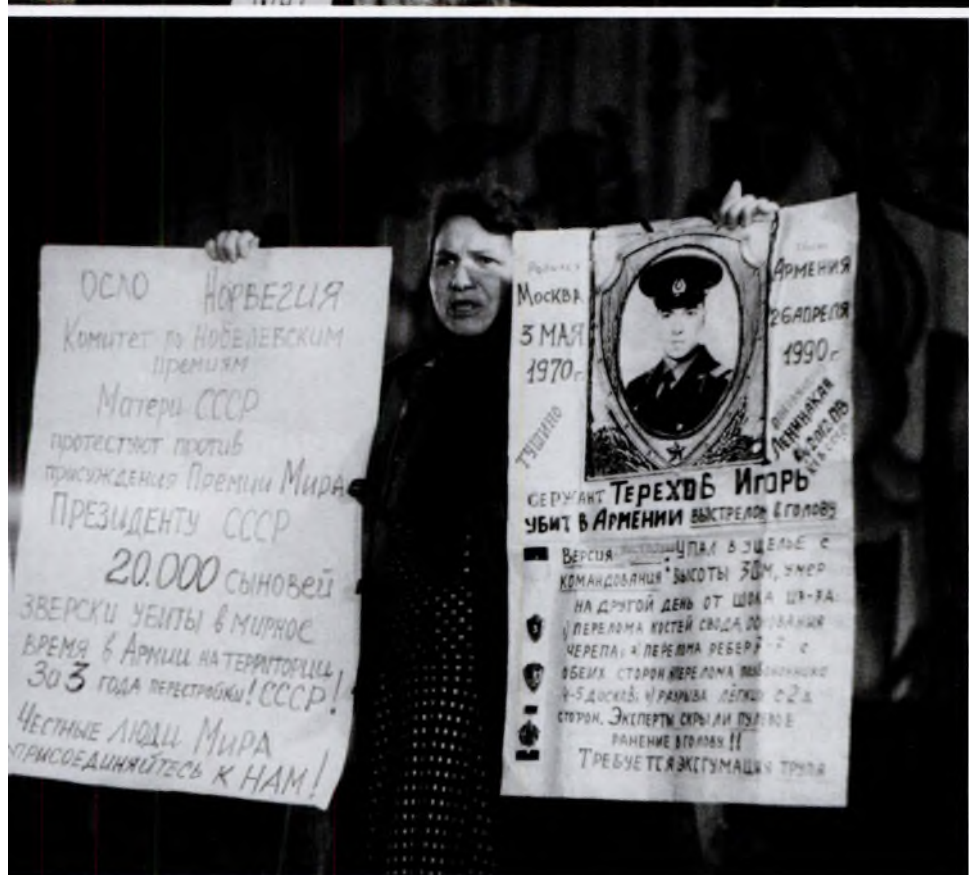 ОСЛО НОРВЕГИЯ
Комитет по Нобелевским
премиям
Матери СССР
протестуют против
присуждения Премии Мира
Президенту СССР
20.000 сыновей
зверски убиты в мирное
время в Армии на территории
За 3 года перестройки! СССР!
Честные люди Мира
присоединяйтесь к нам!
Родился
Москва
3 МАЯ
1970г.
Тушино
Армения
26 апреля
1990г.
Ленинакан
сержант Терехов Игорь
убит в Армении выстрелом в голову
Версия
командования: упал в ущелье с
высоты 30м, умер
на другой день от шока из-за:
1) перелома костей свода, основания
черепа; 2) перелома ребер с
обеих сторон
4-5 досков; 4) разрыва лёгких с 2х
сторон. Эксперты скрыли пулевое
ранение в голову!!
Требуется эксгумация трупа